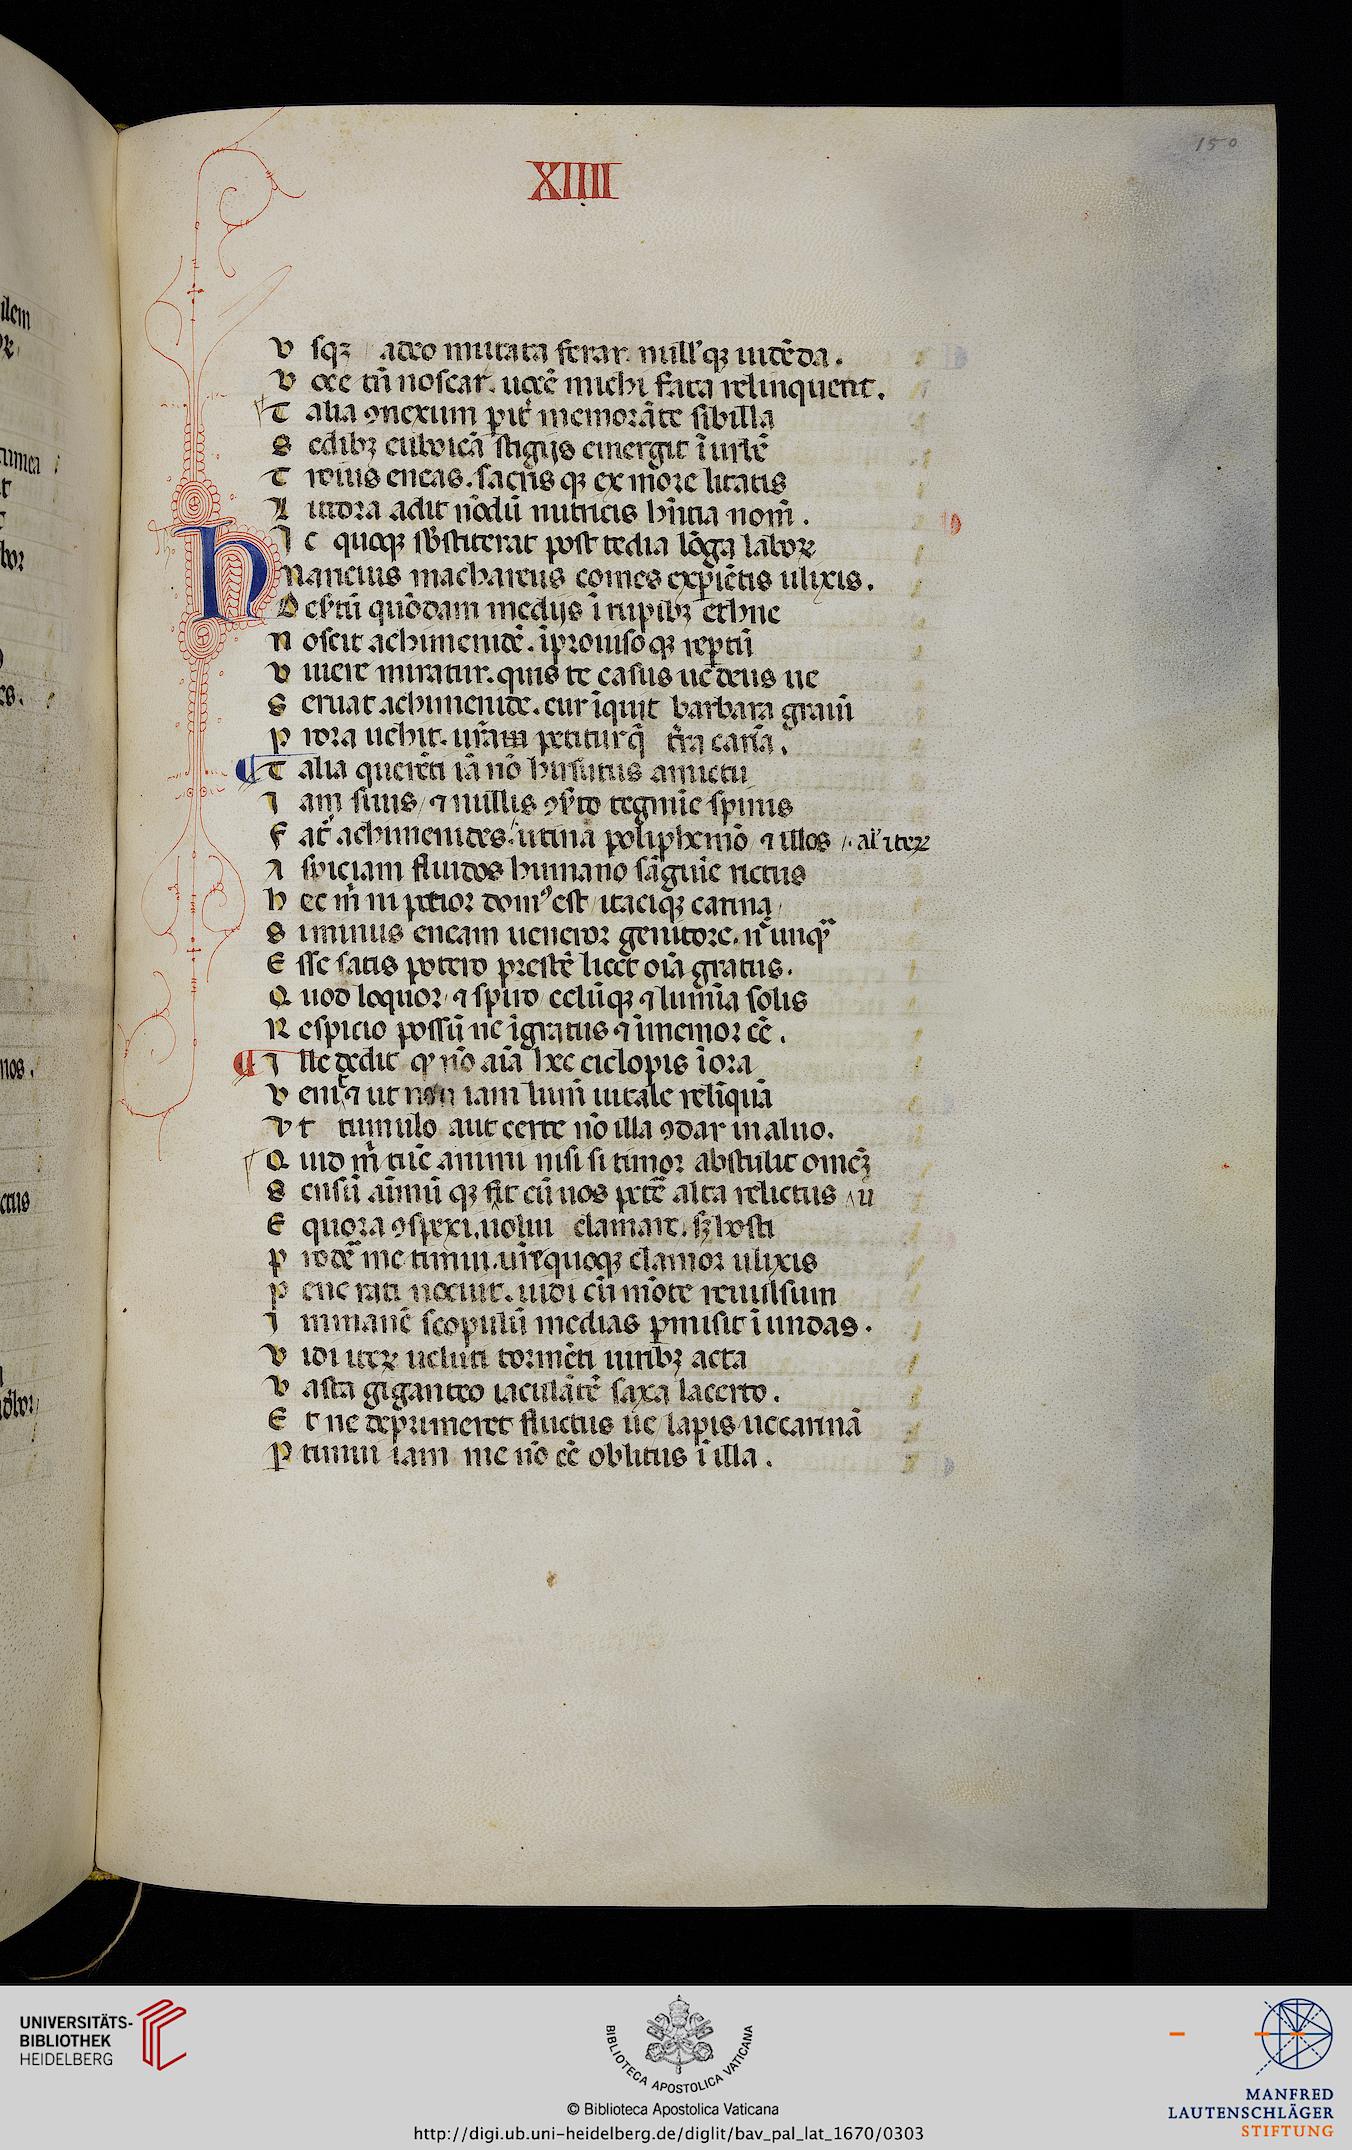 150
XIIII
V sqȝ adeo mutata ferar. null'qȝ uidēda.
V oce tn̄ noscar. uocē michi fata relinquent.
T alia ꝯnexum p̱ it' memorāte sibilla
S edibȝ euboicā stigijs emergit ī urbē
T roius eneas. sacris qȝ ex more litatis
L itora adit nōdū nutricis hn̄tia nom̄.
H I c quoqȝ sb̄stiterat post tedia lōga laboꝝ
N aricius machareus comes exp̱iētis ulixis.
D es̄tū quōdam medijs ī rupibȝ ethne
N oscit achimenidē. īprouisoqȝ rep̱tū
V iuere miratur. quis te casus ue deus ue
S eruat achimenide. cur īquit barbara graiū
P rora uehit. ur̄am petiturq̄ t'ra carīa.
¶ T alia querēti iā nō hirsutus amictu
I am suus / ⁊ nullis ꝯs̄to tegmīe spinis
F at' achimenides. utinā poliphemō ⁊ illos /. al' iteꝝ
A spiciam fluidos humano sāguīe rictus
H ec m̄ ni potior domꝰ est / itaciqȝ carina /
S i minus eneam ueneror genitore. n̄ unqᷓ
E sse satis potero prestē licet oīa gratus.
Q uod loquor / ⁊ spiro / celūqȝ ⁊ lumīa solis
R espicio possū ne īgratus ⁊ īmemor eē.
¶ I lle dedit qꝫ nō aīa hec ciclopis ī ora
V enit ⁊ ut iam lum̄ uitale relīquā
V t tumulo aut certe nō illa ꝯdar in aluo.
Q uid m̄ tūc animi nisi si timor abstulit omēȝ
S ensū aīmū qȝ fit cū uos petē alta relictus
E quora ꝯspexi. uolui clamare. sȝ hosti
P rodē me timui. ur̄e quoqȝ clamor ulixis
P ene rati nocuit. uidi cū mōte reuulsum
I mmanē scopulū medias p̱misit ī undas.
V idi iteꝝ ueluti tormēti uiribȝ acta
V asta giganteo iaculātē saxa lacerto.
E t ne deprimeret fluctus ue / lapis / ue carinā
P timui iam me nō eē oblitus ī illa.
UNIVERSITÄTS-
BIBLIOTHEK
HEIDELBERG
BIBLIOTECA APOSTOLICA VATICANA
© Biblioteca Apostolica Vaticana
http://digi.ub.uni-heidelberg.de/diglit/bav_pal_lat_1670/0303
MANFRED
LAUTENSCHLÄGER
STIFTUNG